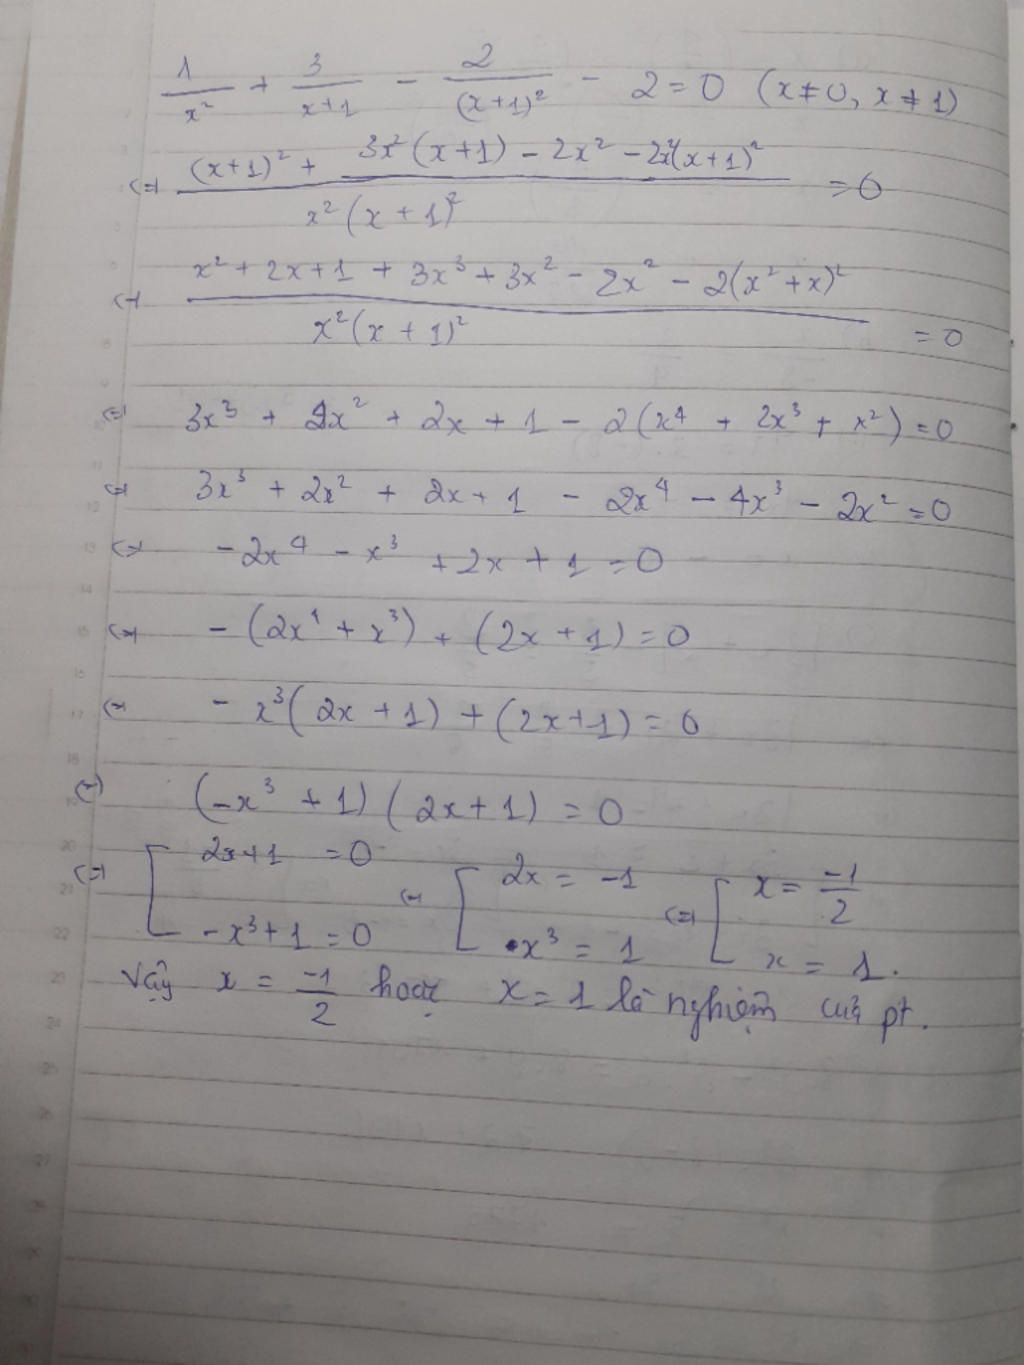 1/x² + 3/(x+1) - 2/(x+1)² - 2 = 0 (x≠0, x≠1)
(=) ((x+1)² + 3x²(x+1) - 2x² - 2x²(x+1)²)/(x²(x+1)²) = 0
(=) (x² + 2x + 1 + 3x³ + 3x² - 2x² - 2(x²+x)²)/(x²(x+1)²) = 0
(=) 3x³ + 2x² + 2x + 1 - 2(x⁴ + 2x³ + x²) = 0
(=) 3x³ + 2x² + 2x + 1 - 2x⁴ - 4x³ - 2x² = 0
(=) -2x⁴ - x³ + 2x + 1 = 0
(=) -(2x⁴ + x³) + (2x + 1) = 0
(=) -x³(2x + 1) + (2x+1) = 0
(=) (-x³ + 1)(2x + 1) = 0
(=) [ 2x+1 = 0 (=) [ 2x = -1 (=) [ x = -1/2
-x³+1 = 0 x³ = 1 x = 1.
Vậy x = -1/2 hoặc x = 1 là nghiệm của pt.